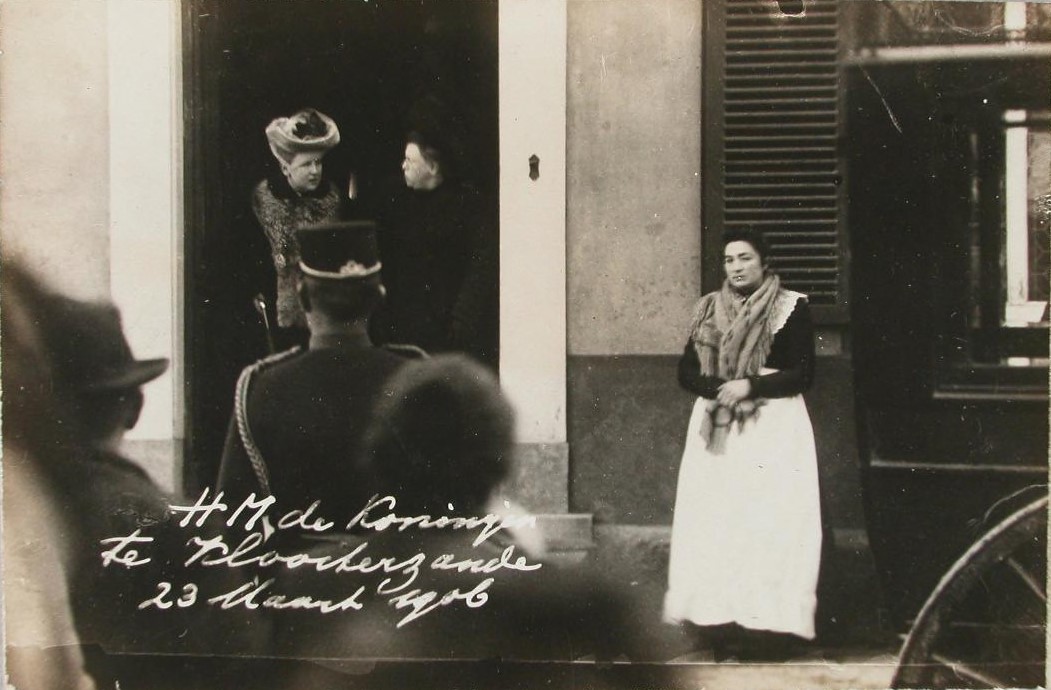 H M, de Koningin
te Kloosterzande
23 Maart 1906